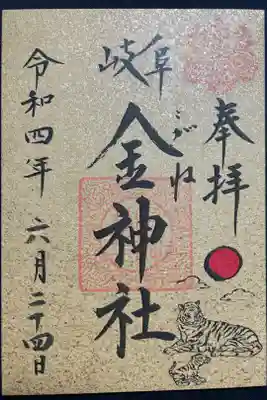 奉拝
岐阜
金神社
こがね
令和四年六月二十四日